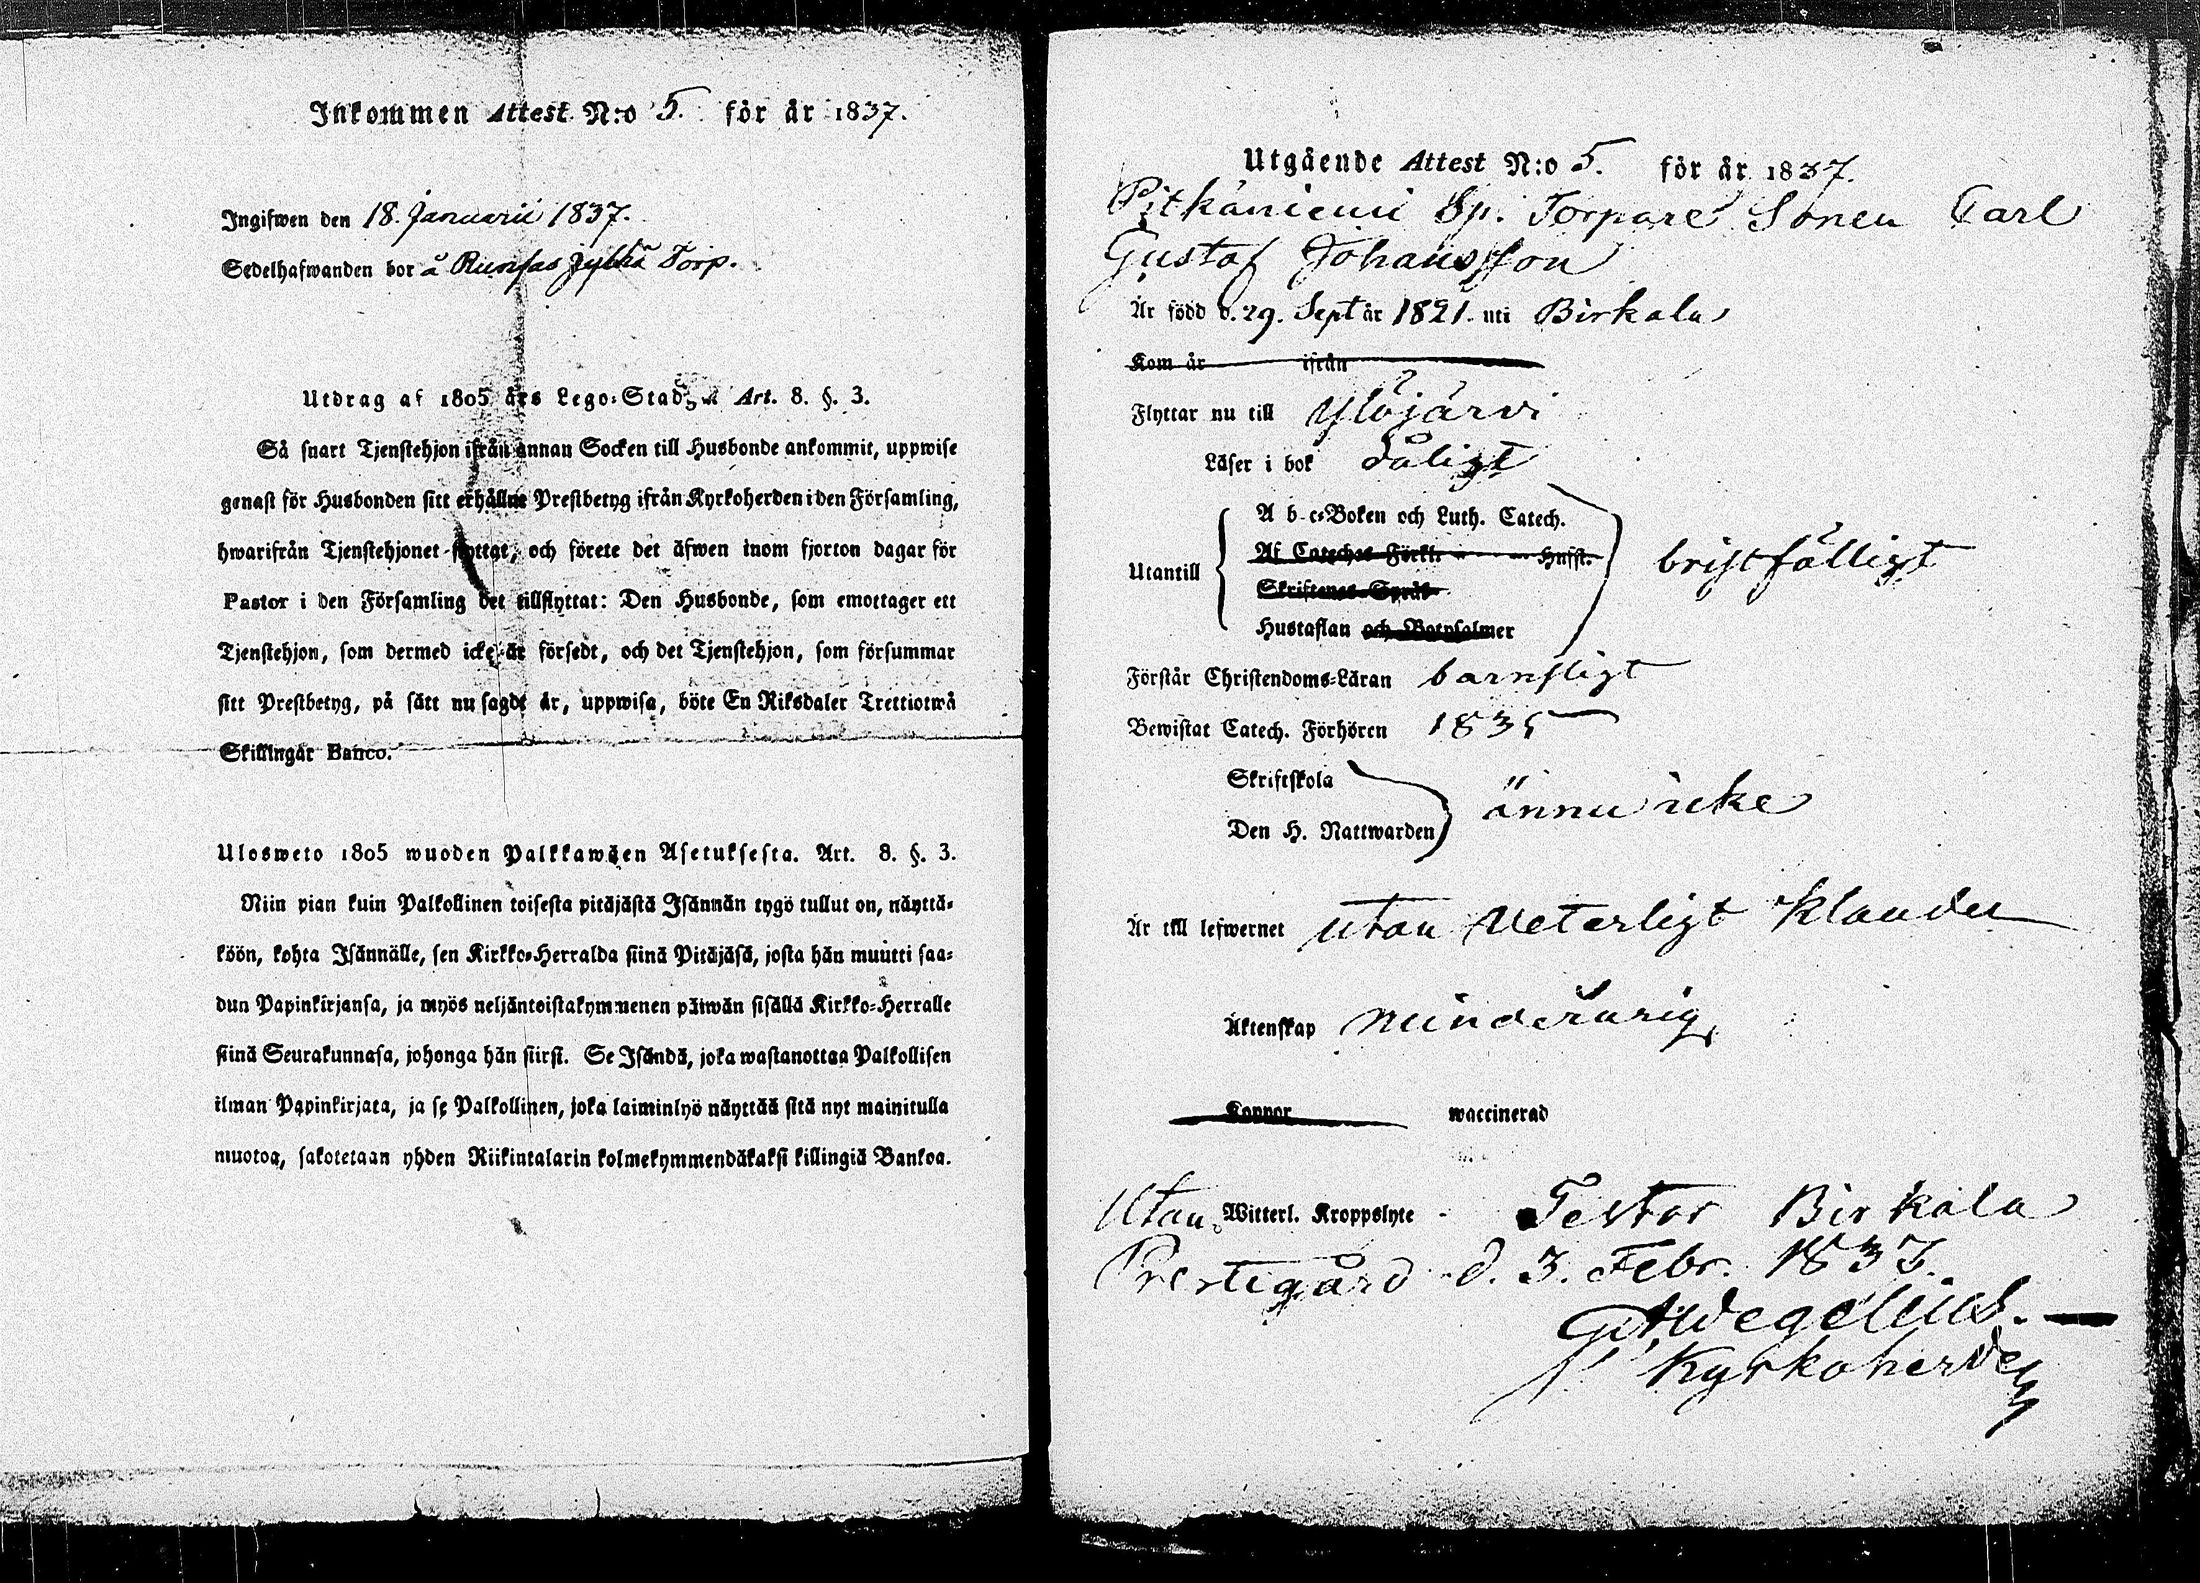 Inkommen Attest N:o 5. för år 1837.
Ingifwen den 18. Januarii 1837.
Sedelhafwanden bor å Torp.
Utdrag af 1805 års Lego-Stadga Art. 8. §. 3.
Så snart Tjenstehjon ifrån annan Socken till Husbonde ankommit, uppwise
genast för Husbonden sitt erhållne Prestbetyg ifrån Kyrkoherden i den Församling,
hwarifrån Tjenstehjonet flyttat, och förete det äfwen inom fjorton dagar för
Pastor i den Församling det tillflyttat: Den Husbonde, som emottager ett
Tjenstehjon, som dermed icke är försedt, och det Tjenstehjon, som försummar
sitt Prestbetyg, på sätt nu sagdt är, uppwisa, böte En Riksdaler Trettiotwå
Skillingar Banco.
Ulosweto 1805 wuoden Palkkawäen Asetuksesta. Art. 8. §. 3.
Niin pian kuin Palkollinen toisesta pitäjästä Isännän tygö tullut on, näyttä-
köön, kohta Isännälle, sen Kirkko-Herralda siinä Pitäjäsä, josta hän muutti saa-
dun Papinkirjansa, ja myös neljäntoistakymmenen päiwän sisällä Kirkko-Herralle
siinä Seurakunnasa, johonga hän siirsi. Se Isändä, joka wastanottaa Palkollisen
ilman Papinkirjata, ja se Palkollinen, joka laiminlyö näyttää sitä nyt mainitulla
muotoa, sakotetaan yhden Riikintalarin kolmekymmendäkaksi killingiä Bankoa.
Utgående Attest N:o 5. för år 1837.
Pitkäniemi Sp. Torpare Sonen Carl
Gustaf Johansson
Är född d. 29. Sept år 1821 uti Birkala
Kom år ifrån
Flyttar nu till Ylöjärvi
Läser i bok dåligt
Utantill
A b c-Boken och Luth. Catech.
Af Cateches Förkl. Hufst.
Skriftenes Språk
Hustaflan och Botpsalmer
bristfälligt
Förstår Christendoms-Läran barnsligt
Bewistat Catech. Förhören 1835
Skriftskola
Den H. Nattwarden
ännu icke
Är till lefwernet utan veterligt klander
Äktenskap minderårig
Koppor waccinerad
Utan Witterl. Kroppslyte - Testor Birkala
Prestegård d. 3. Febr. 1837.
Wegelius.
Kyrkoherde